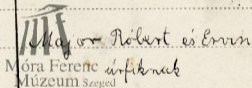 Major Róbert és Ervin
úrfiknak
Móra Ferenc
Múzeum Szeged